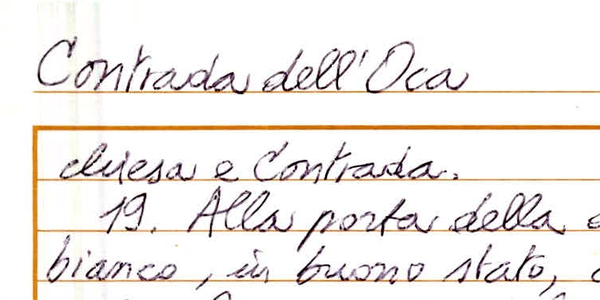 Contrada dell'Oca
chiesa e Contrada.
19. Alla porta della
bianco, in buono stato,